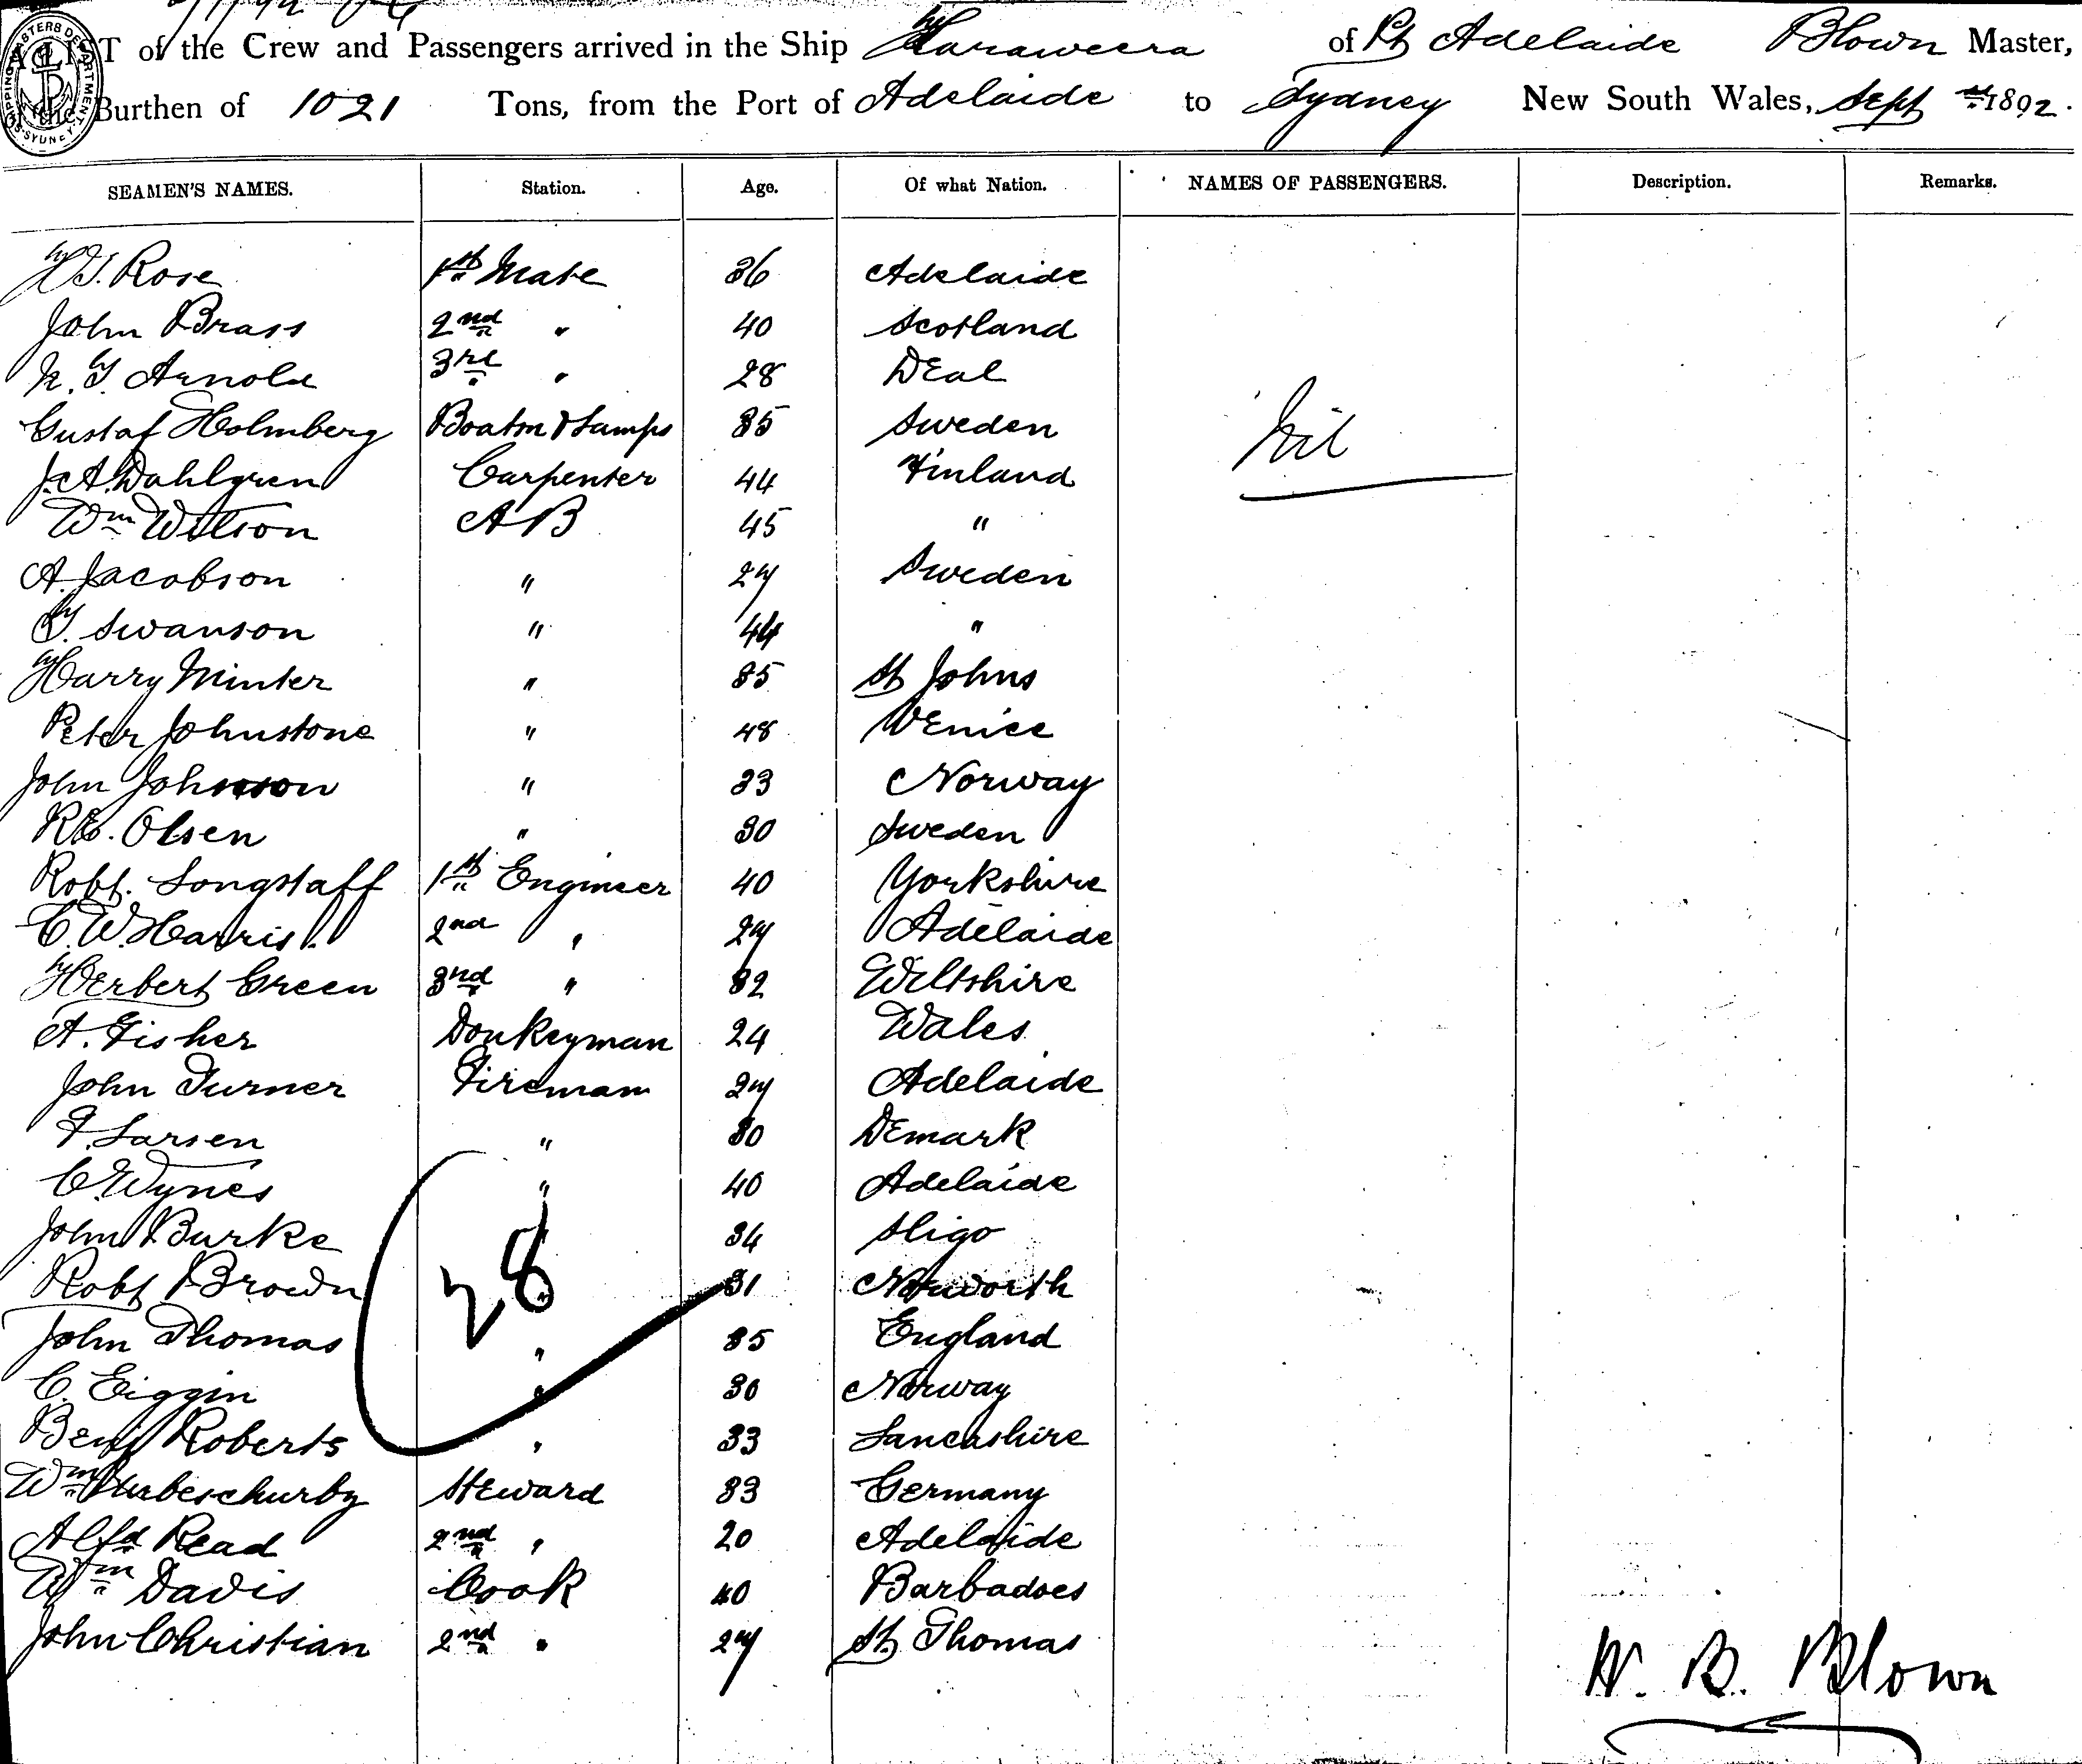 A LIST of the Crew and Passengers arrived in the Ship Karaweera of Pt Adelaide Blown Master,
of the Burthen of 1021 Tons, from the Port of Adelaide to Sydney New South Wales, Sept 1892.
SEAMEN'S NAMES. Station. Age. Of what Nation. NAMES OF PASSENGERS. Description. Remarks.
H. J. Rose 1st Mate 36 Adelaide
John Brass 2nd " 40 Scotland
Arnold 3rd " 28 DEal
Gustaf Holmberg Boatsn & Lamps 35 Sweden
Nil
J. A. Dahlgren Carpenter 44 Finland
Wm Wilson AB 45 "
A. Jacobson " 27 Sweden
Swanson " 44 "
Harry Minter " 35 St Johns
Peter Johnstone " 48 VEnice
John Johnson " 33 Norway
Olsen " 30 Sweden
Robt. Longstaff 1st Engineer 40 Yorkshire
C. W. Harris 2nd " 27 Adelaide
HErbert Green 3rd " 32 Wiltshire
A. Fisher Donkeyman 24 Wales
John Turner Fireman 27 Adelaide
F. Larsen " 30 DEmark
C. Wynes " 40 Adelaide
John Burke " 34 Sligo
28
Robt Brown " 31 Norworth
John Thomas " 35 England
C. Eiggin " 30 Norway
Benj Roberts " 33 Lancashire
Wm Steward 33 Germany
Alfd Read 2nd " 20 Adelaide
Wm Davis Cook 40 Barbadoes
John Christian 2nd " 27 St Thomas
W. B. Blown